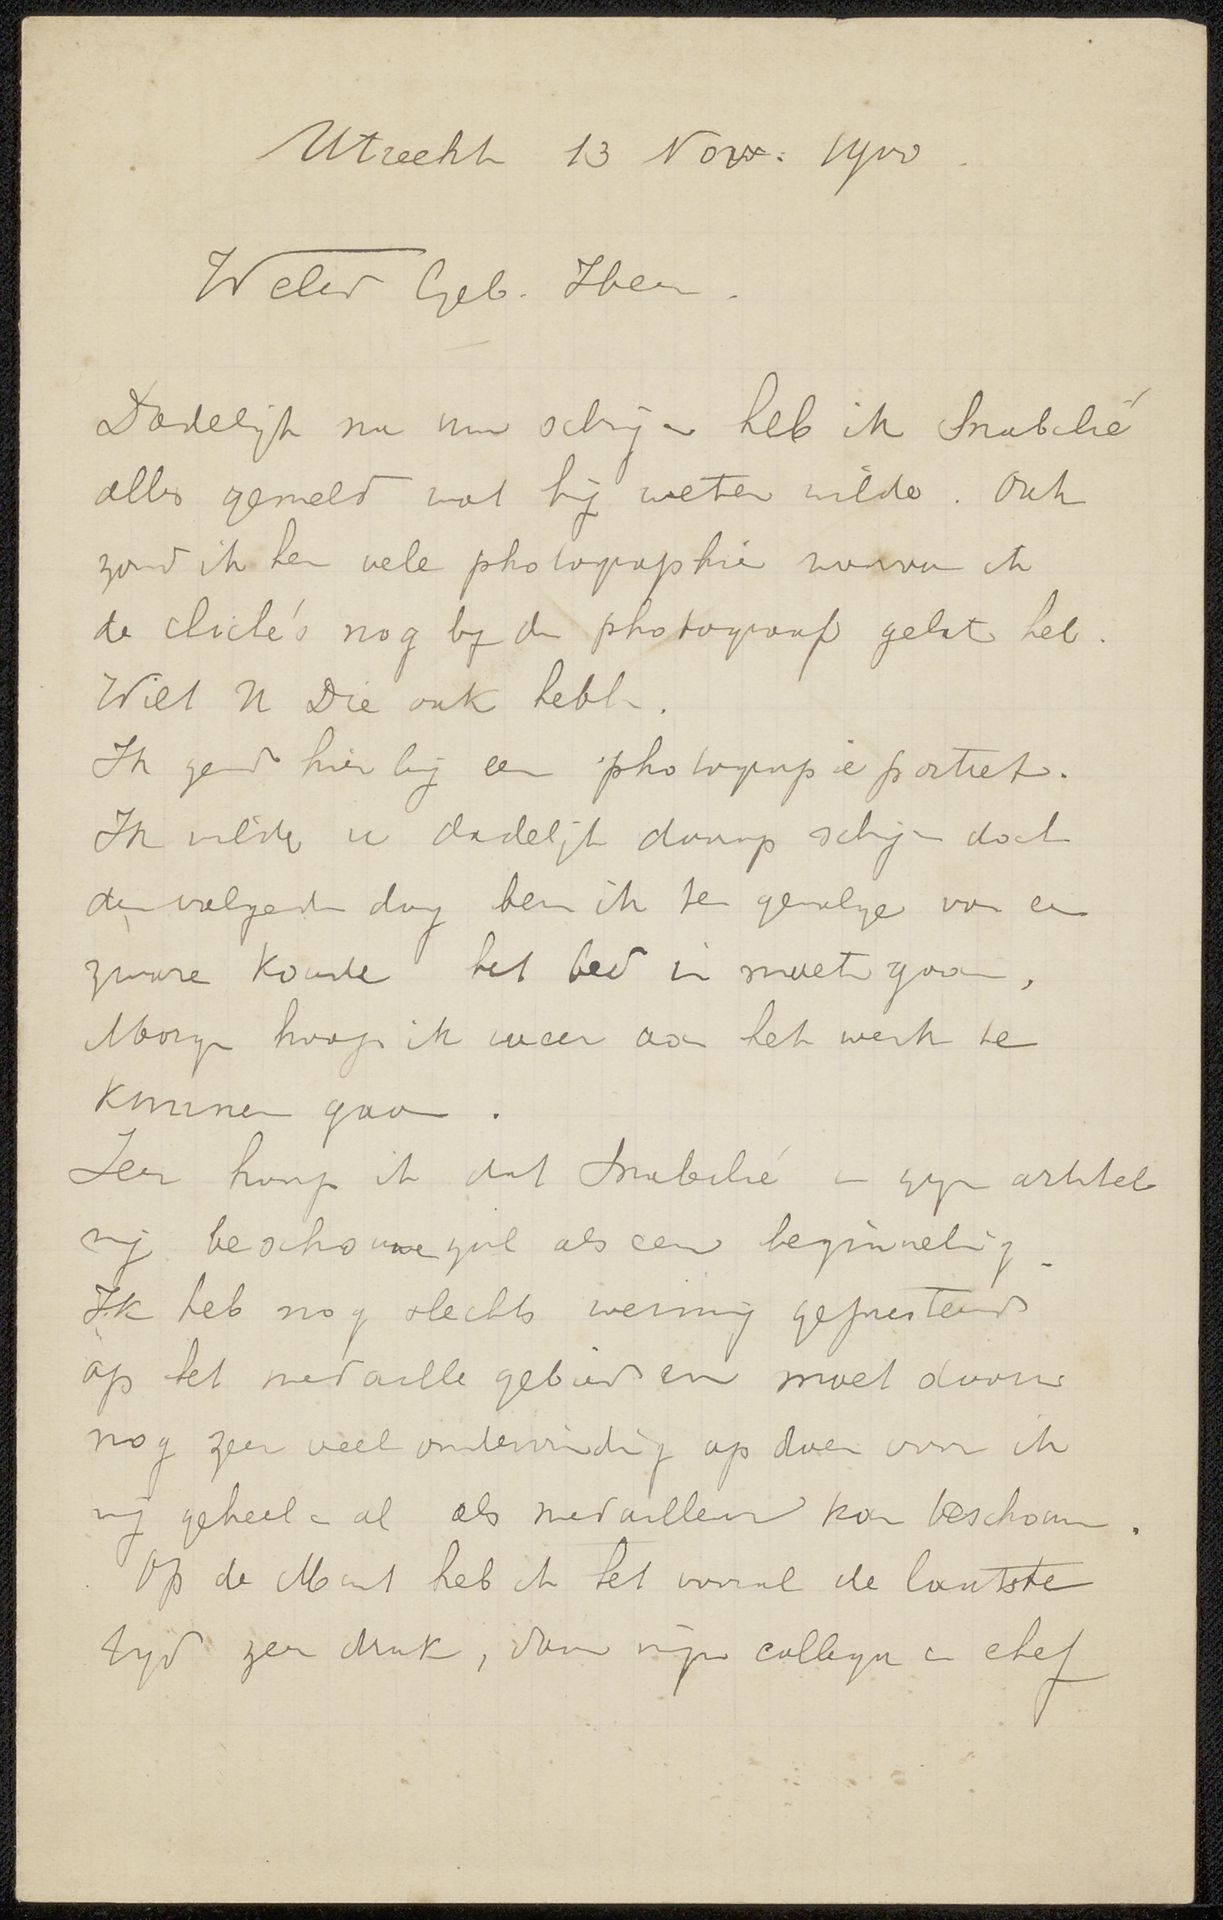 Utrecht 13 Nov. 1900.
WelEd Geb. Heer.
Dadelijk na uw schrijven heb ik Snabilié
alles gemeld wat hij weten wilde. Ook
zond ik hem vele photographien waarvan ik
de cliché's nog bij den photograaf gelat heb.
Wilt U Die ook hebben.
Ik zend hierbij een photograpie portret.
Ik wilde u dadelijk daarop schrijven doch
den volgenden dag ben ik ten gevolge van een
zware koude het bed in moeten gaan,
Morgen hoop ik weer aan het werk te
kunnen gaan.
Zeer hoop ik dat Snabilié in zijn artikel
mij beschouwen zal als een beginneling.
Ik heb nog slechts weinig gepresteerd
op het medaille gebied en moet daarin
nog zeer veel ondervinding op doen voor ik
mij geheel en al als medailleur kan beschouwen.
Op de Munt heb ik het vooral de laatste
tijd zeer druk, daar mijn collega en chef